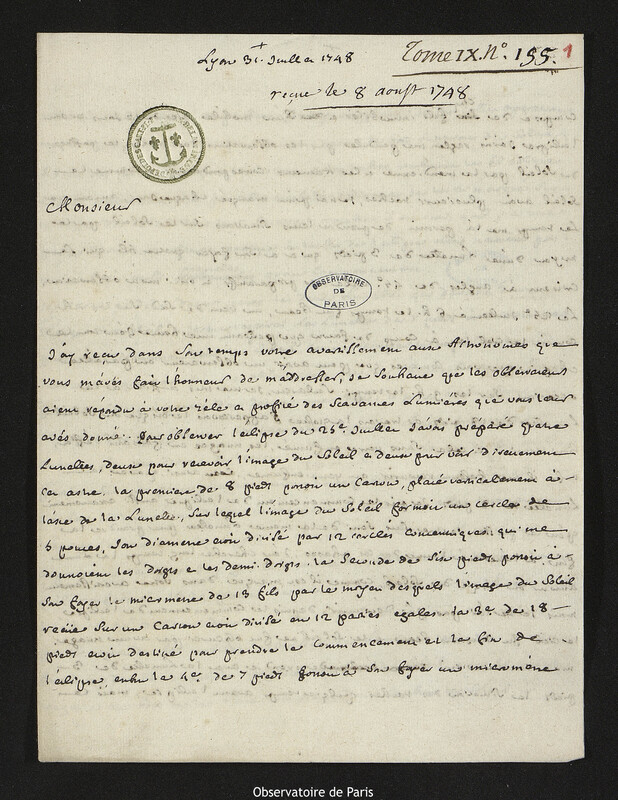 Lyon 31. Juillet 1748
Tome IX. N°. 155. 1
reçue le 8 aoust 1748
Monsieur
OBSERVATOIRE
DE
PARIS
J'ay receu dans son temps votre avertissement aux Astronomes que
vous m'avés fait l'honneur de m'addresser, je souhaite que les observateurs
aient répondu à votre zèle et profité des scavantes lumières que vous leur
avés donné. Pour observer l'eclipse du 25e. Juillet J'avois préparé quatre
Lunettes, deux pour recevoir l'image du Soleil et deux pour voir directement
cet astre. la première de 8 pieds portoit un Carton, placé verticalement à
l'axe de la Lunette, sur lequel l'image du Soleil formoit un cercle de
5 pouces, son diametre etoit divisé par 12 cercles concentriques qui me
donnoient les doigts et les demi-doigts. la Seconde de six pieds portoit à
son foyer le micrometre de 13 fils par le moyen desquels l'image du Soleil
reçüe sur un Carton etoit divisé en 12 parties egales. la 3e. de 18
pieds etoit destiné pour prendre le commencement et la fin de
l'eclipse, enfin la 4e. de 7 pieds portoit à son foyer un micrometre
Observatoire de Paris